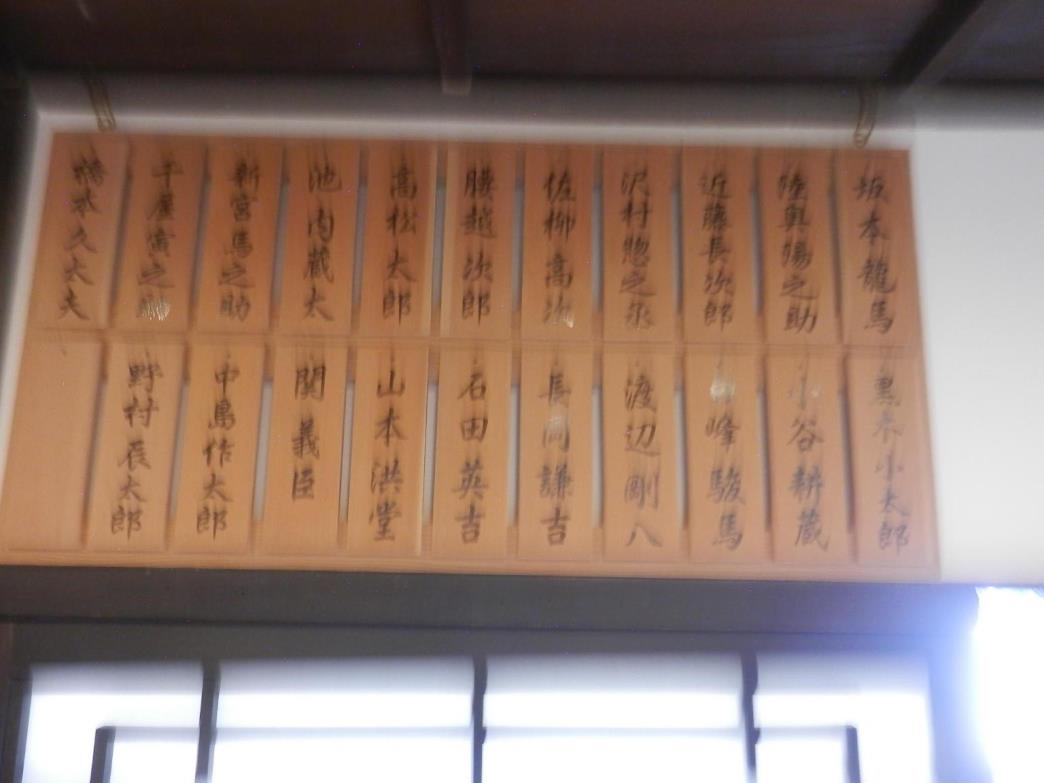 坂本龍馬
陸奥陽之助
近藤長次郎
沢村惣之丞
佐柳高次
腰越次郎
高松太郎
池内蔵太
新宮馬之助
千屋寅之助
橋本久太夫
黒木小太郎
小谷耕蔵
峰駿馬
渡辺剛八
長岡謙吉
石田英吉
山本洪堂
関義臣
中島作太郎
野村辰太郎